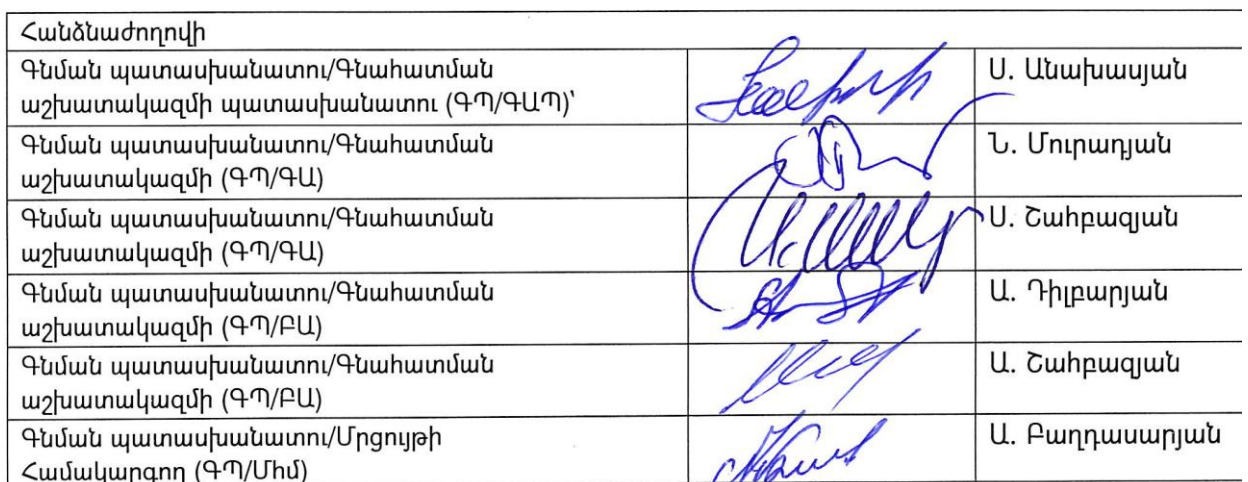 Հանձնաժողովի
Գնման պատասխանատու/Գնահատման
աշխատակազմի պատասխանատու (ԳՊ/ԳԱՊ)՝
Ս. Անախասյան
Գնման պատասխանատու/Գնահատման
աշխատակազմի (ԳՊ/ԳԱ)
Ն. Մուրադյան
Գնման պատասխանատու/Գնահատման
աշխատակազմի (ԳՊ/ԳԱ)
Ս. Շահբազյան
Գնման պատասխանատու/Գնահատման
աշխատակազմի (ԳՊ/ԲԱ)
Ա. Դիլբարյան
Գնման պատասխանատու/Գնահատման
աշխատակազմի (ԳՊ/ԲԱ)
Ա. Շահբազյան
Գնման պատասխանատու/Մրցույթի
Համակարգող (ԳՊ/Մհմ)
Ա. Բաղդասարյան